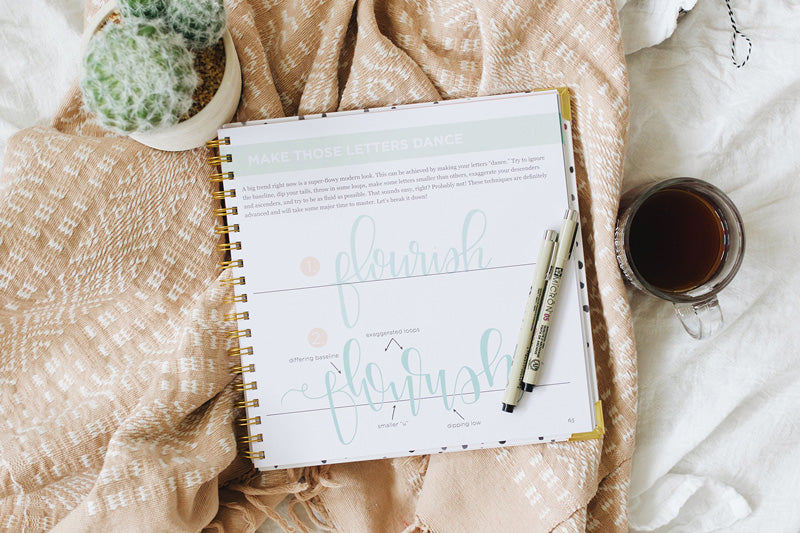 MAKE THOSE LETTERS DANCE
A big trend right now is a super-flowy modern look. This can be achieved by making your letters "dance." Try to ignore
the baseline, dip your tails, throw in some loops, make some letters smaller than others, exaggerate your descenders
and ascenders, and try to be as fluid as possible. That sounds easy, right? Probably not! These techniques are definitely
advanced and will take some major time to master. Let's break it down!
1
flourish
2
exaggerated loops
differing baseline
flourish
smaller "u"
dipping low
63
MICRON 05